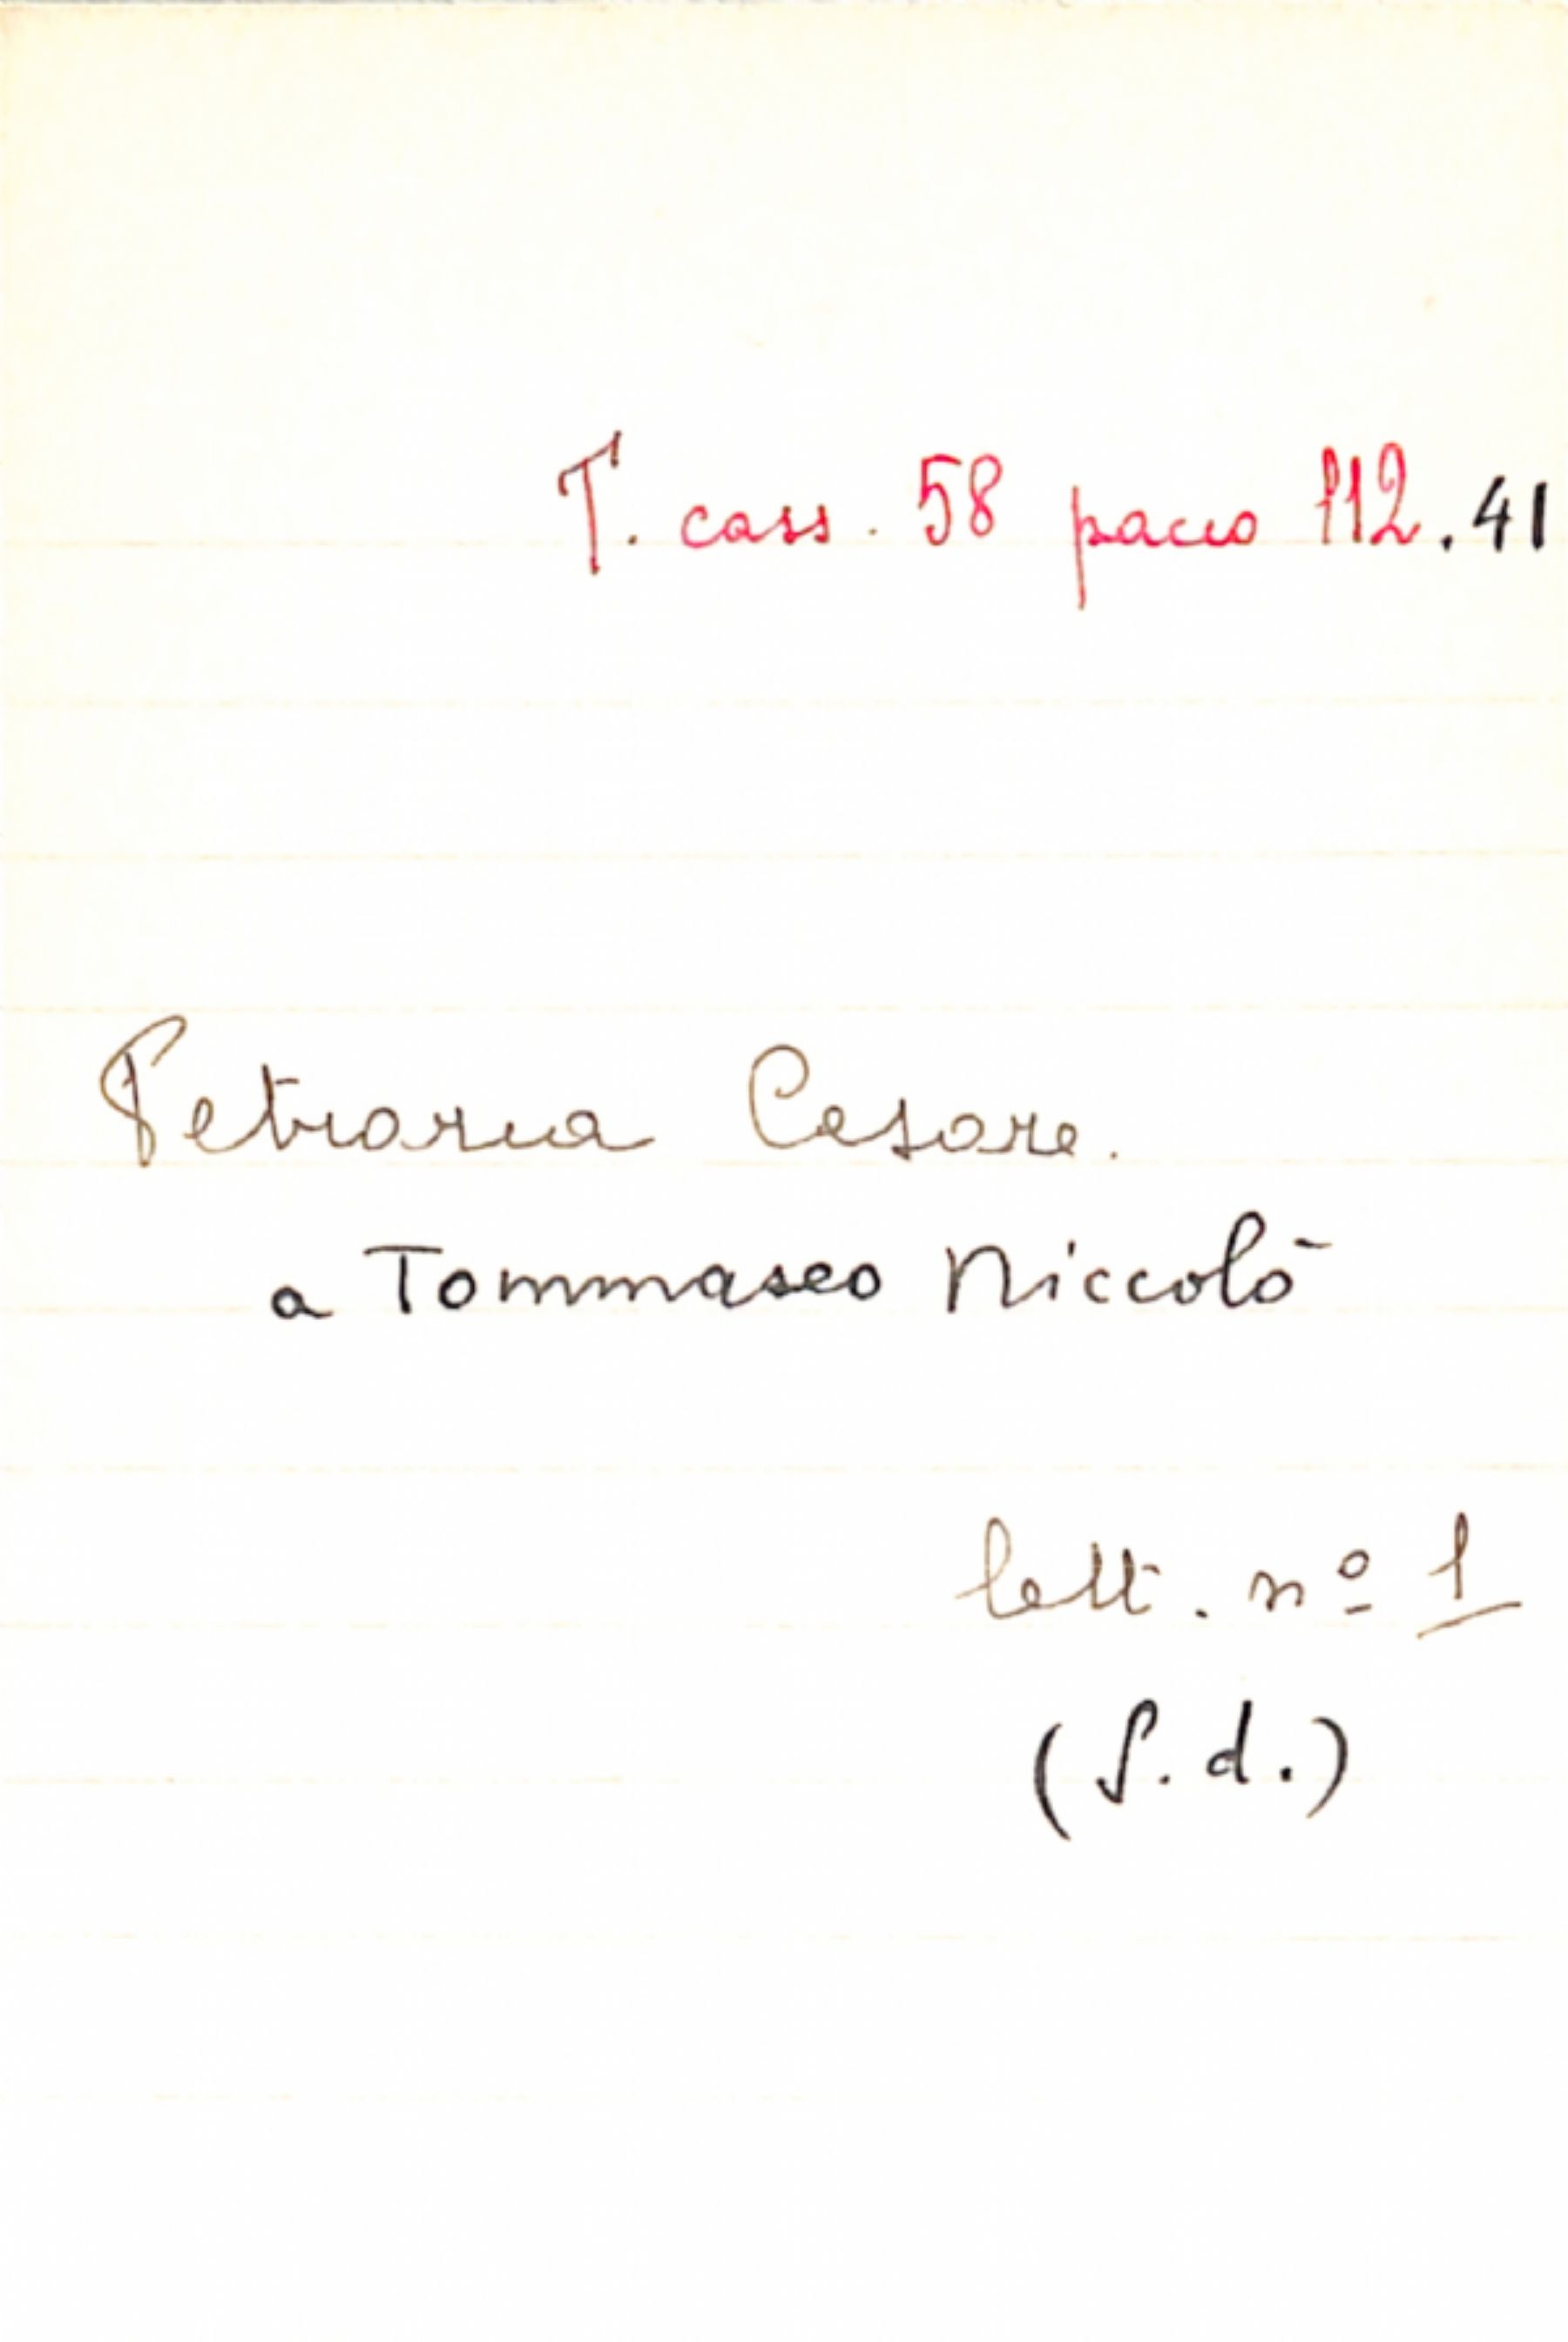 T. cass. 58 pacco 112.41
Cesare.
a Tommaseo Niccolò
lett. nº 1
(S.d.)